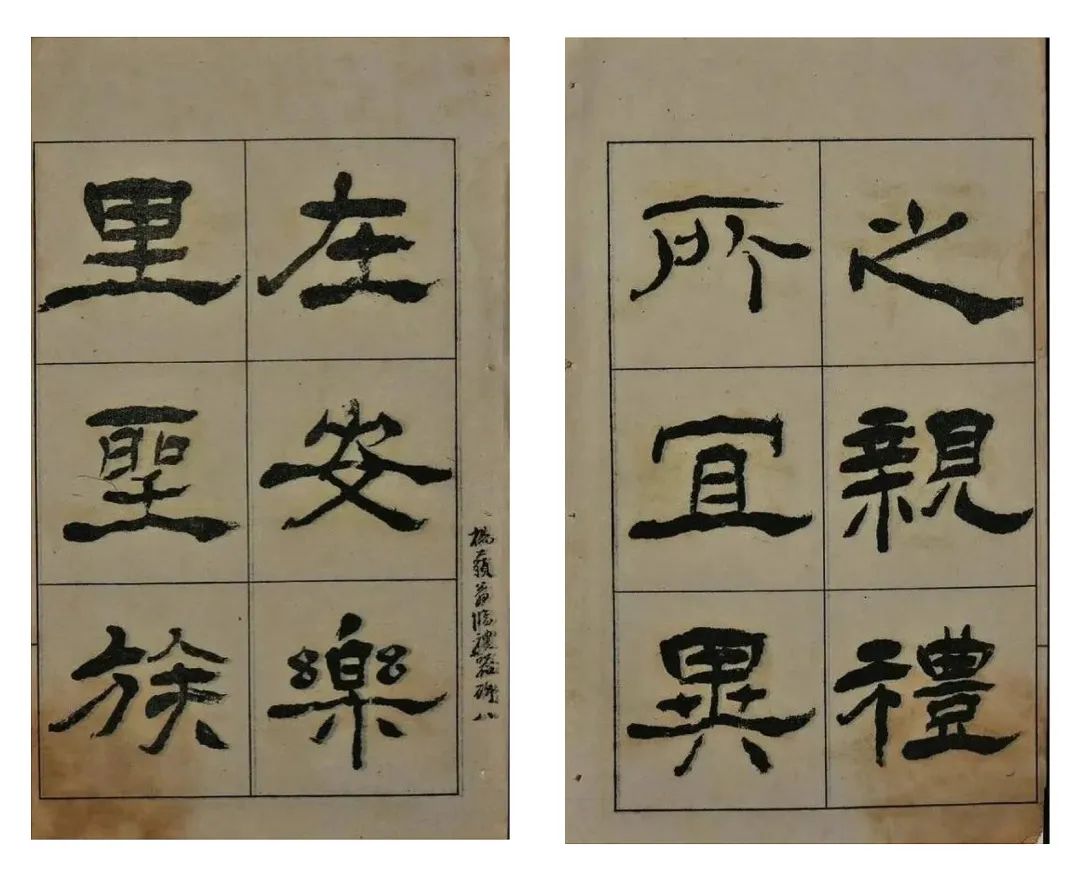 楊藐翁臨禮器碑八
在安樂
里聖族
之親禮
所宜異